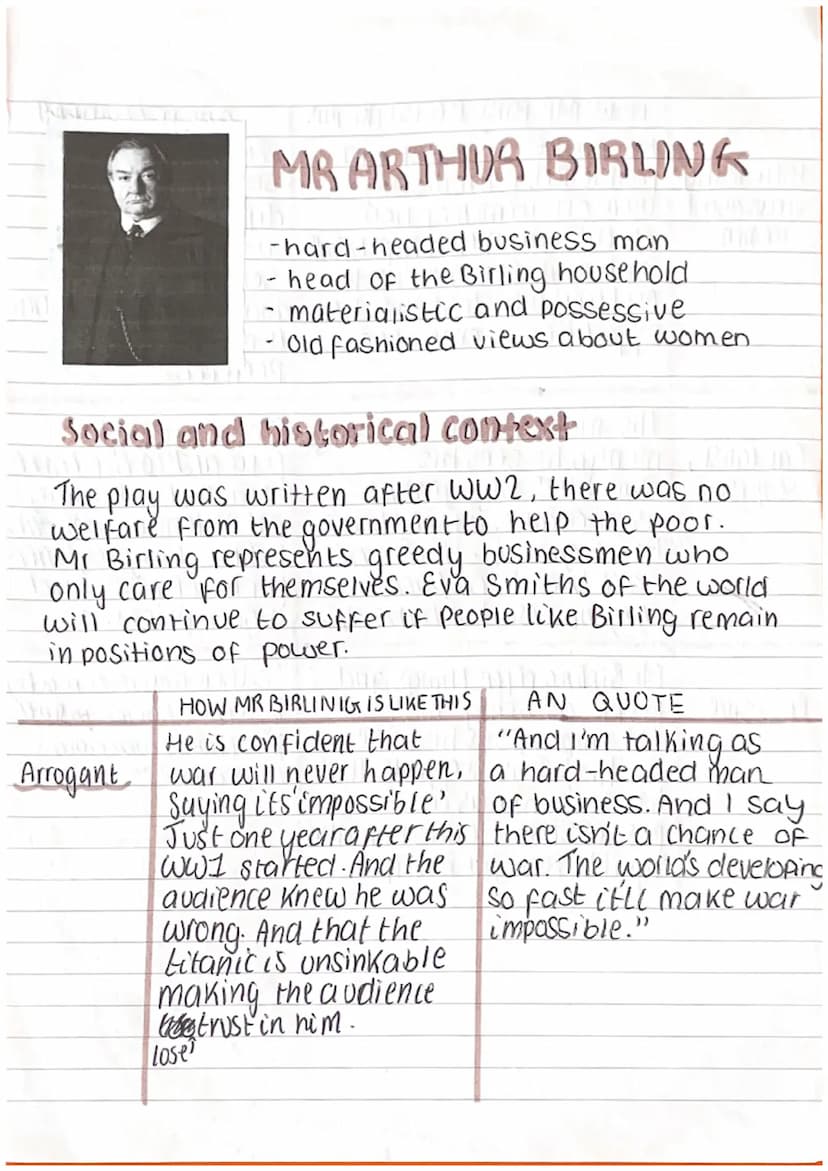 MR ARTHUR BIRLING
-hard-headed business man
- head of the Birling household
- materialistic and possessive
- Old fashioned views about women
Social and historical context
The play was written after WW2, there was no
welfare from the government to help the poor.
Mr Birling represents greedy businessmen who
only care for themselves. Eva Smiths of the world
will continue to suffer if people like Birling remain
in positions of power.
HOW MR BIRLINIG IS LIKE THIS
AN QUOTE
Arrogant
He is confident that
war will never happen,
saying its 'impossible'
Just one year after this
WW1 started. And the
audience knew he was
wrong. And that the
titanic is unsinkable
making the audience
lose trust in him.
"And I'm talking as
a hard-headed man
of business. And I say
there isn't a chance of
war. The world's developing
so fast it'll make war
impossible."